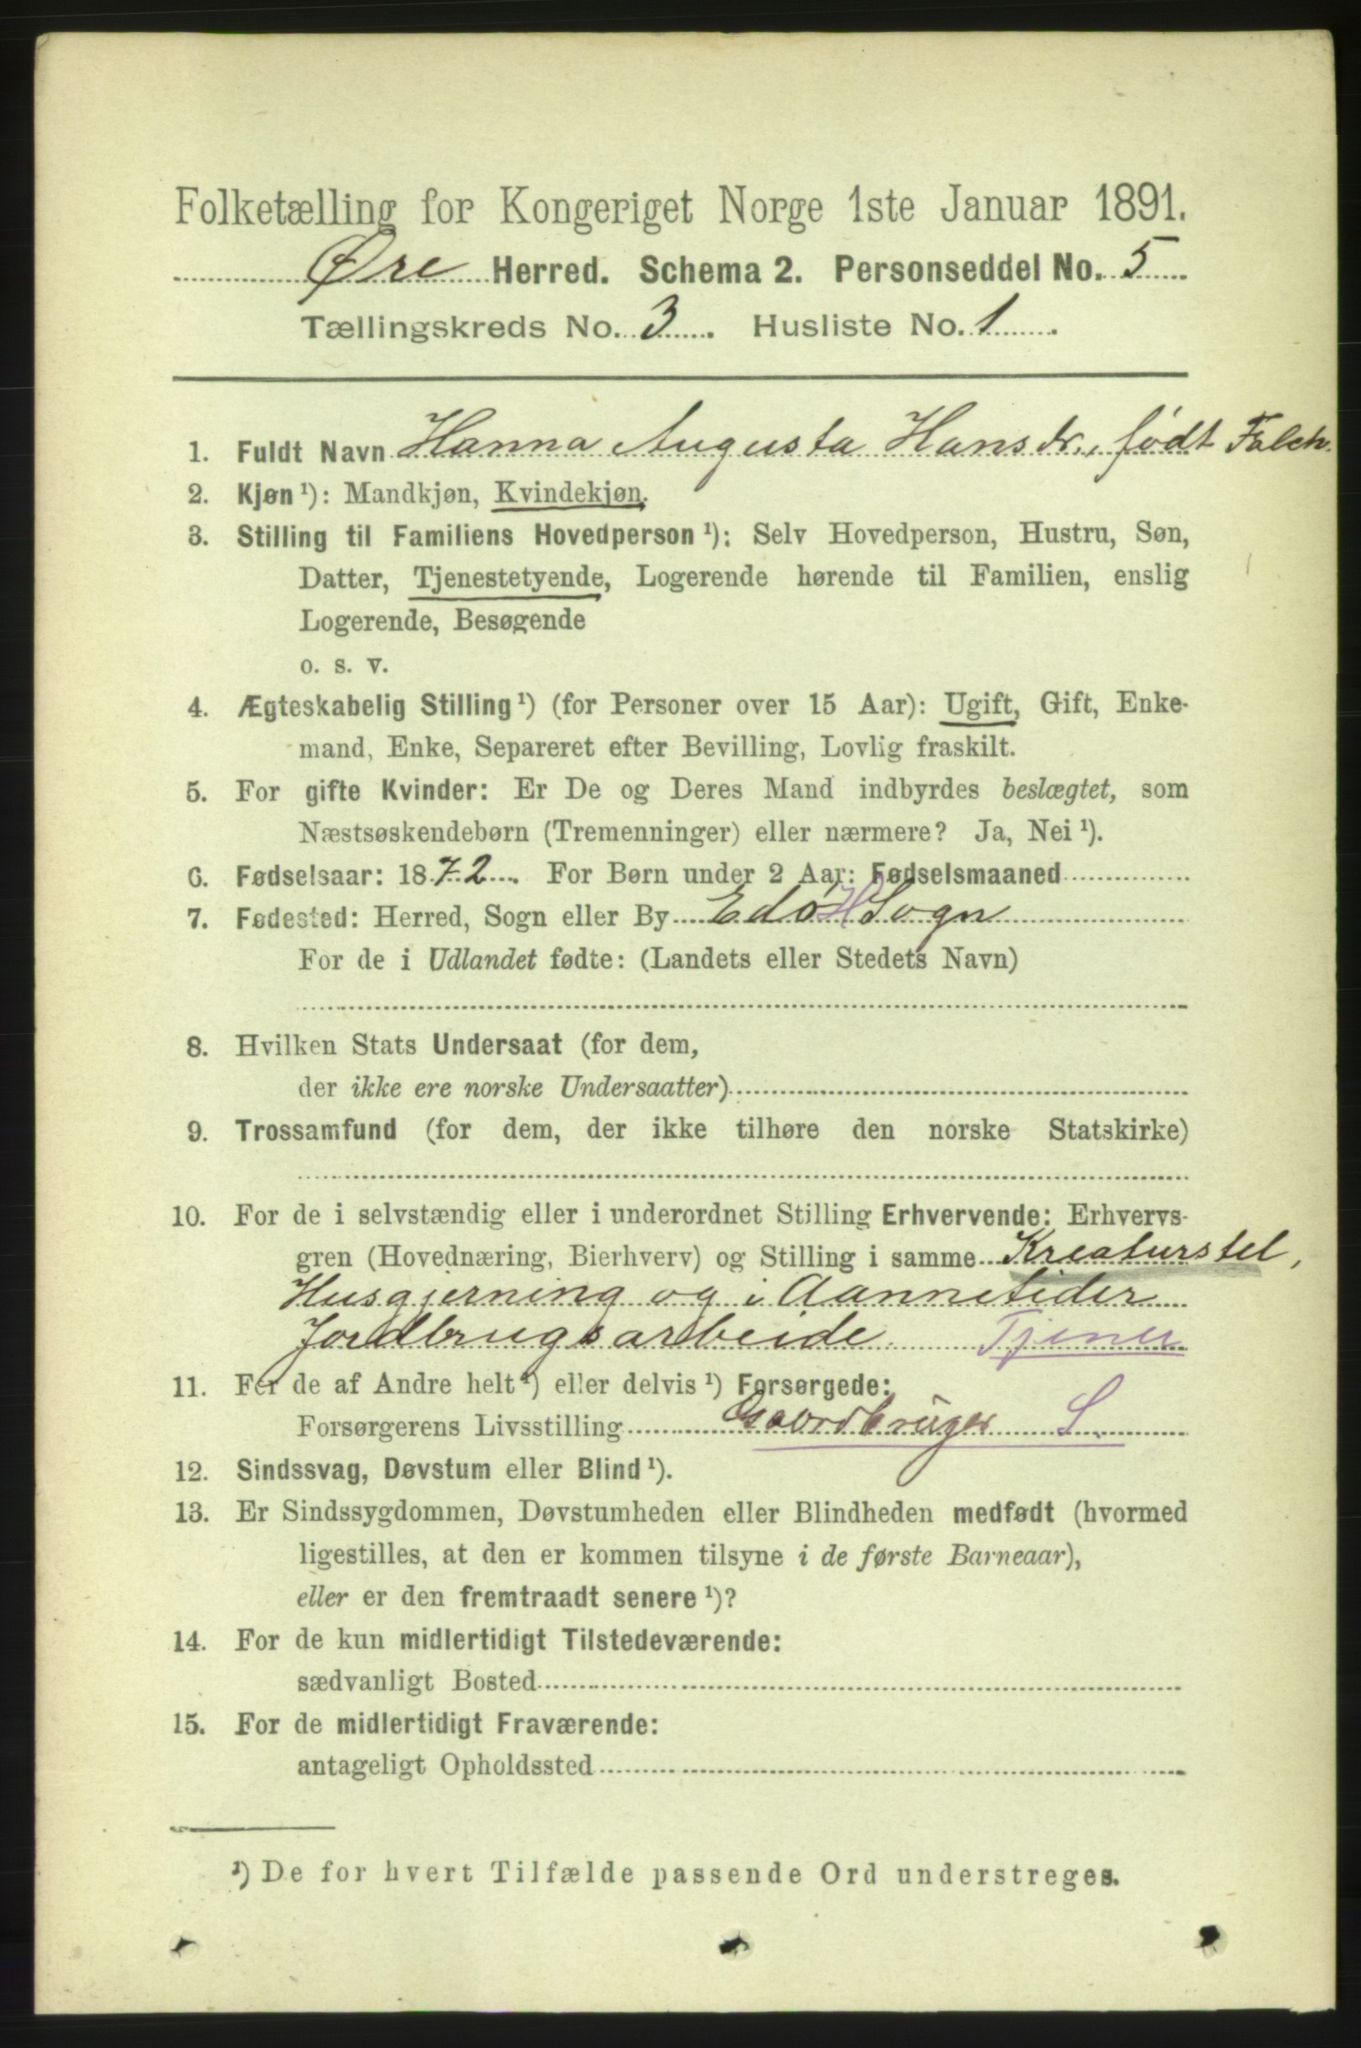 Folketælling for Kongeriget Norge 1ste Januar 1891.
Øre Herred. Schema 2. Personseddel No. 5
Tællingskreds No. 3. Husliste No. 1.
1. Fuldt Navn Hanna Augusta Hansdr., født Falch.
2. Kjøn ¹): Mandkjøn, Kvindekjøn.
3. Stilling til Familiens Hovedperson ¹): Selv Hovedperson, Hustru, Søn,
Datter, Tjenestetyende, Logerende hørende til Familien, enslig
Logerende, Besøgende
o. s. v.
4. Ægteskabelig Stilling ¹) (for Personer over 15 Aar): Ugift, Gift, Enke-
mand, Enke, Separeret efter Bevilling, Lovlig fraskilt.
5. For gifte Kvinder: Er De og Deres Mand indbyrdes beslægtet, som
Næstsøskendebørn (Tremenninger) eller nærmere? Ja, Nei ¹).
6. Fødselsaar: 1872. For Børn under 2 Aar: Fødselsmaaned
7. Fødested: Herred, Sogn eller By Edø H Sogn
For de i Udlandet fødte: (Landets eller Stedets Navn)
8. Hvilken Stats Undersaat (for dem,
der ikke ere norske Undersaatter)
9. Trossamfund (for dem, der ikke tilhøre den norske Statskirke)
10. For de i selvstændig eller i underordnet Stilling Erhvervende: Erhvervs-
gren (Hovednæring, Bierhverv) og Stilling i samme Kreaturstel,
Husgjerning og i Aannetider
Jordbrugsarbeide. Tjener
11. For de af Andre helt ¹) eller delvis ¹) Forsørgede:
Forsørgerens Livsstilling Gaardbruger S.
12. Sindssvag, Døvstum eller Blind ¹).
13. Er Sindssygdommen, Døvstumheden eller Blindheden medfødt (hvormed
ligestilles, at den er kommen tilsyne i de første Barneaar),
eller er den fremtraadt senere ¹)?
14. For de kun midlertidigt Tilstedeværende:
sædvanligt Bosted
15. For de midlertidigt Fraværende:
antageligt Opholdssted
¹) De for hvert Tilfælde passende Ord understreges.